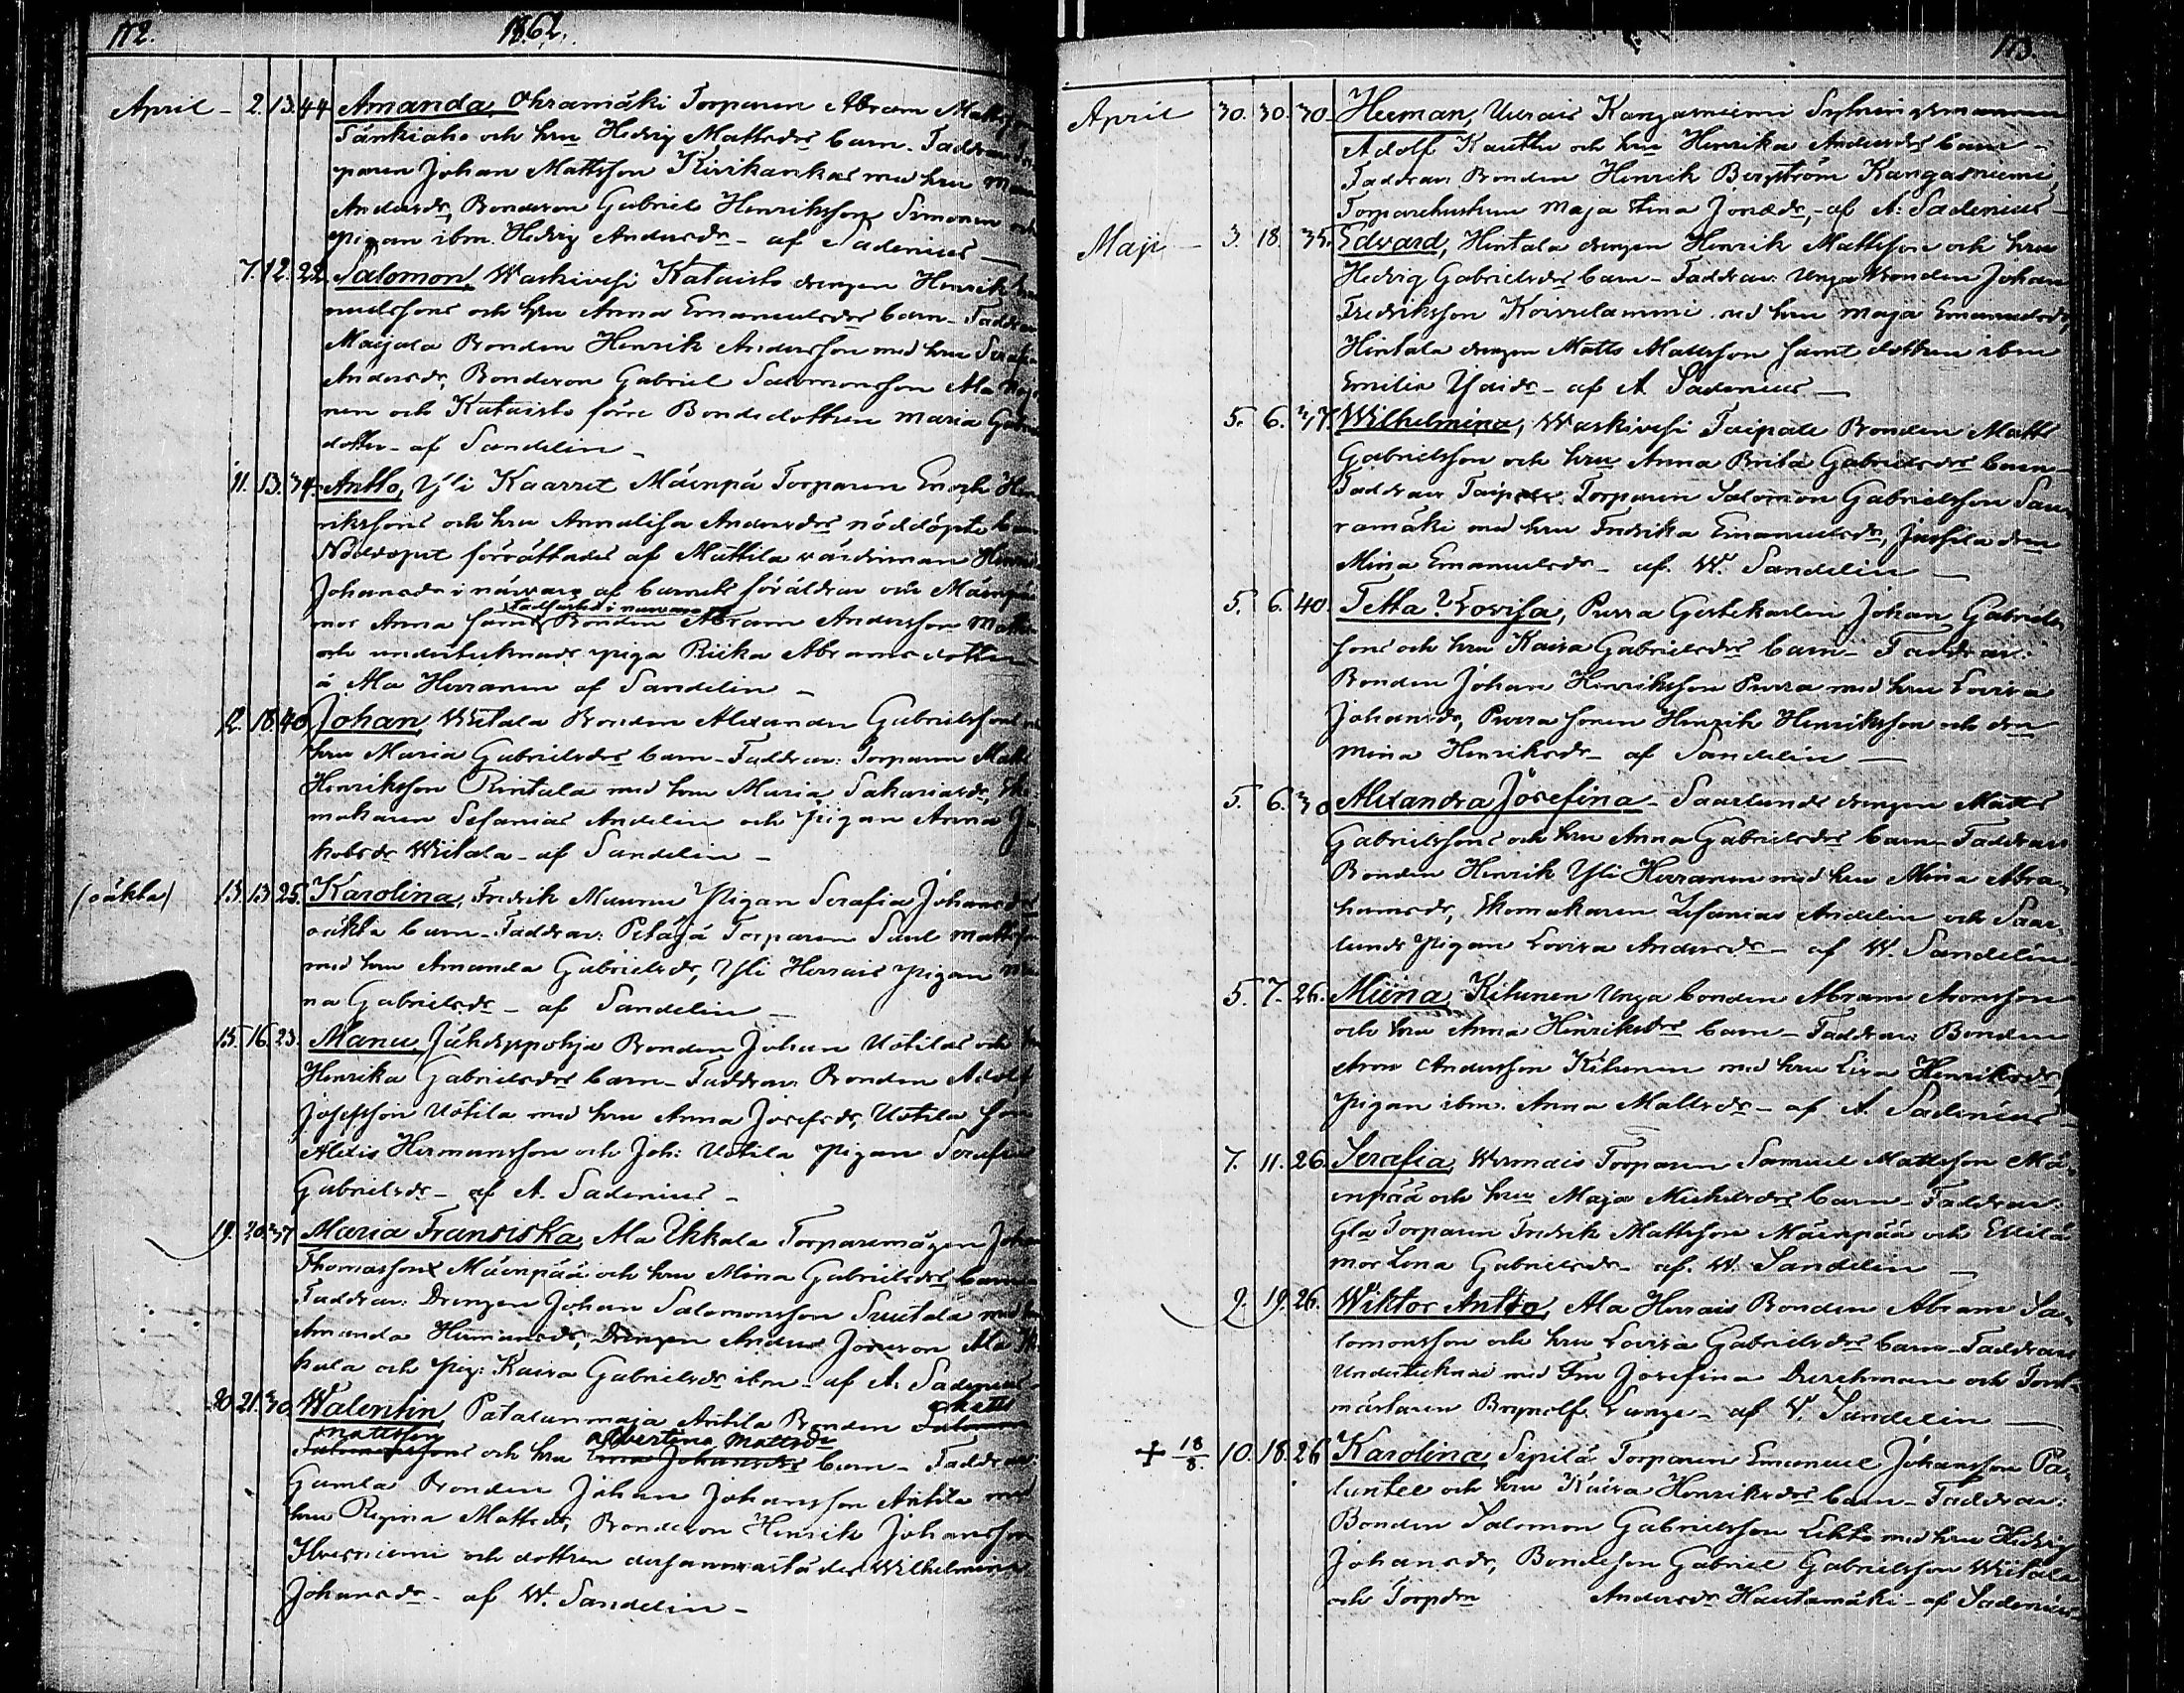 172.
1862.
April - 2. 13. 44 Amanda, Ohramäki Torparen Abram Mattsson
Sänkiaho och hru Hedvig Mattsdrs barn - Faddrar
paren Johan Mattsson Kivikankas med hru
Andersdr, Bondeson Gabriel Henriksson Simonen och
pigan ibm. Hedvig Andersdr - af Sadenius -
7. 12. 22. Salomon, Waskivesi Kataisto drengen Henrik
nuelssons och hru Anna Emanuelsdrs barn - Faddrar
Majala Bonden Henrik Andersson med hru Serafia
Andersdr, Bondeson Gabriel Salomonsson Ala
nen och Kataisto förre Bondedottren Maria Gabriels
dotter - af Sandelin -
11. 13. 34 Antto, Yli Kaarret Mäenpä Torparen Enoch Hen
rikssons och hru Annalisa Andersdrs nöddöpte barn
Nöddopet förrättades af Mattila värdinnan
Johansdr i närvaro af barnets föräldrar och Mäenpää
mor Anna samt Bonden Abram Andersson
Stadfästed i närvaro af
och undertecknads piga Riika Abramsdotter
à Ala Herranen af Sandelin -
12. 18. 40 Johan, Wiitala Bonden Alexander Gabrielssons och
hru Maria Gabrielsdrs barn - Faddrar: Torparen Matts
Henriksson Rintala med hru Maria Sakariasdr, Sko
makaren Sefanias Andelin och pigan Anna Ja
kobsdr Wiitala - af Sandelin -
(oäkta) 13. 13. 25. Karolina, Fredrik Maurun Pigan Serafia Johansdrs
oäkta barn - Faddrar: Petäjä Torparen Saul Mattsson
med hru Amanda Gabrielsdr, Yli Herrais pigan Mi
na Gabrielsdr - af Sandelin -
15. 16. 23. Manu, Jähdyspohja Bonden Johan Uotilas och hru
Henrika Gabrielsdrs barn - Faddrar: Bonden Adolf
Josefsson Uotila med hru Anna Josefsdr, Uotila son
Alexis Hermansson och Joh: Uotila pigan Serafia
Gabrielsdr - af A. Sadenius -
19. 20. 37 Maria Fransiska, Ala Ikkala Torparemågen Johan
Thomassons Mäenpää och hru Mina Gabrielsdrs barn
Faddrar: Drengen Johan Salomonsson Suutala med hru
Amanda Hermansdr, Drengen Anders Jonsson Ala
kala och pig: Kaisa Gabrielsdr ibm - af A. Sadenius
20. 21. 30. Walentin, Patalanmaja Anttila Bonden Matts
Mattsson och hru Albertina Mattsdr barn - Faddrar:
Gamla Bonden Johan Johansson Anttila med
hru Regina Mattsdr, Bondeson Henrik Johansson
Ilvesniemi och dottren dersammastädes Wilhelmina
Johansdr - af W. Sandelin -
173.
April 30. 30. 30. Herman, Uurais Kangasniemi Sytningsmannen
Adolf Kauttu och hru Henrika Andersdrs barn -
Faddrar: Bonden Henrik Bergström Kangasniemi,
Torparehustrun Maja Stina Jonædr, - af A: Sadenius -
Maji - 3. 18. 35. Edvard, Hintala drengen Henrik Mattsson och hru
Hedvig Gabrielsdrs barn - Faddrar: Unga Bonden Johan
Fredriksson Koivulammi med hru Maja Emanuelsdr,
Hintala drengen Matts Mattsson samt dottren ibm
Emilia Isaidr - af A Sadenius -
5. 6. 37. Wilhelmina, Waskivesi Taipale Bonden Matts
Gabrielsson och hru Anna Brita Gabrielsdrs barn -
Faddrar Taipale Torparen Salomon Gabrielsson Saa
ramäki med hru Fredrika Emanuelsdr, Jussila dren
Miina Emanuelsdr - af. W. Sandelin -
5. 6. 40. Tetta? Lovisa, Purra Gerbekarlen Johan Gabriels
sons och hru Kaisa Gabrielsdrs barn - Faddrar:
Bonden Johan Henriksson Purra med hru Lovisa
Johansdr, Purra sonen Henrik Henriksson och drn
Mina Henriksdr - af Sandelin -
5. 6. 30 Alexandra Josefina - Saarlunds drengen Matts
Gabrielssons och hru Anna Gabrielsdrs barn - Faddrar
Bonden Henrik Yli Herranen med hru Mina Abra
hamsdr, Skomakaren Zefanias Andelin och Saar
lunds pigan Lovisa Andersdr - af W. Sandelin
5. 7. 26. Miina, Kitunen Unga bonden Abram Aronsson
och hru Anna Henriksdrs barn - Faddrar: Bonden
Aron Andersson Kitunen med hru Lisa Henriksdr,
Pigan ibm. Anna Mattsdr - af A. Sadenius -
7. 11. 26. Serafia, Wermais Torparen Samuel Mattsson Mä
enpää och hru Maja Michelsdrs barn - Faddrar:
Gla Torparen Fredrik Mattsson Mäenpää och Eskilä
mor Lena Gabrielsdr - af. W. Sandelin -
9. 19. 26. Wiktor Antto, Ala Herrais Bonden Abram Sa
lomonsson och hru Lovisa Gabrielsdrs barn - Faddrar
Undertecknad med Fru Josefina Durchman och Forst
mästaren Brynolf Lunge - af W. Sandelin -
+ 18/8. 10. 18. 26 Karolina, Sepilä Torparen Emanuel Johansson Pa
luntee och hru Kaisa Henriksdrs barn - Faddrar:
Bonden Salomon Gabrielsson Lehto med hru Hedvig
Johansdr, Bondeson Gabriel Gabrielsson Wiitala
och Torpdrn Andersdr Hautamäki - af Sadenius